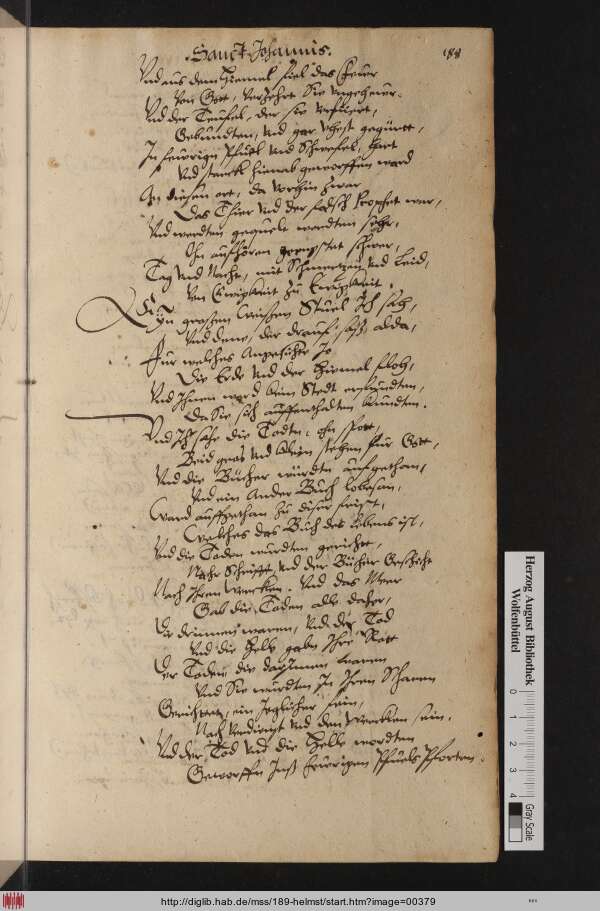 Sanct Johannis.
188
Vnd aus dem Himel fiel das Feuer
Von Gott, verzehrt Sie vngeheur.
Vnd der Teufel, der sie verfuert,
Gebundten, vnd gar vhest
In feurign Pfuel vnd Schwefel, hart
Vnd starck hinab geworffen ward
An diesen ort, da vorhin zwar
Das Thier vnd der falsch Prophet war,
Vnd werdten gequelt wordten sehr,
Ohn auffhören schwer,
Tag vnd Nacht, mit Schmertzen vnd Leid,
Von Ewigkeit zu Ewigkeit.
Eyn grossen weissen Stuel Ich sah,
Vnd dene, der drauf saß, alda,
Fur welches Angesichte Jo
Die Erde vnd der Himel floh,
Vnd Ihnen ward kein Stedt erfundten,
Da Sie sich auffenthalten kundten.
Vnd Ich sahe die Todtn, ohn spott,
Beid gros vnd klein stehen fur Gott,
Vnd die Bücher würdtn aufgethan,
Vnd ein Ander Buch lobesan,
Ward auffgethan zu diser frist,
Welches das Buch des Lebens ist,
Vnd die Toden wurdten gericht,
Nach Schrifft vnd der Bücher Geschicht
Nach Ihren Wercken. Vnd das Meer
Gab die Toden alle daher,
Die drinnen waren, Vnd der Tod
Vnd die Helle gabn Ihre Rott
Der Toden die darinnen waren
Vnd Sie wurdten In Ihren Scharen
Gerichtet, ein Jeglicher fein,
Nach verdienst vnd den Wercken sein.
Vnd der Tod vnd die Helle wordten
Geworffn Inß feurigen Pfuels Pforten.
Herzog August Bibliothek
Wolfenbüttel
0 1 2 3 4
Gray Scale
http://diglib.hab.de/mss/189-helmst/start.htm?image=00379